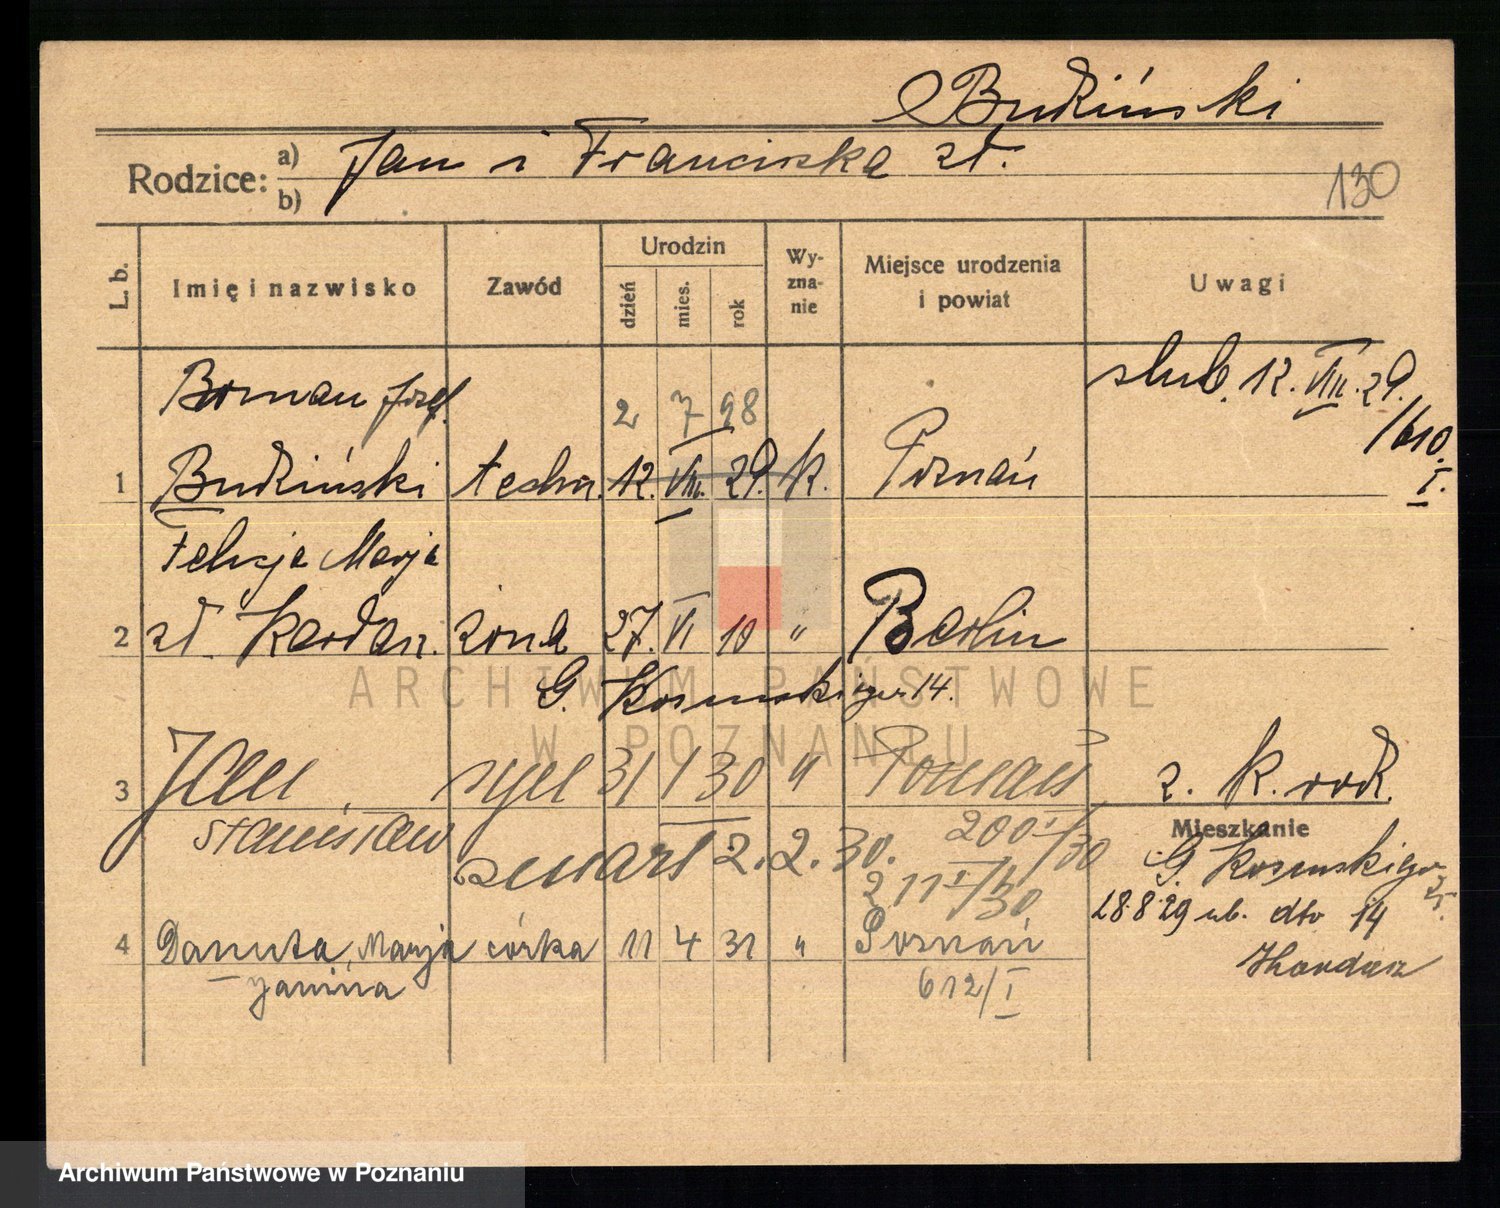 Budziński
Rodzice: a) Jan i Franciszka zd.
b)
130
L. b. Imię i nazwisko Zawód Urodzin dzień mies. rok Wyzna-nie Miejsce urodzenia i powiat Uwagi
Roman Józef 2 7 98 slub. 12. VIII. 29.
/610.
I.
1 Budziński techn. 12. VIII. 29. k. Poznań
Felicja Marja
2 zd. żona 27. VI 10 " Berlin
G. Kosińskiego 14.
3 Jan syn 31 1 30 " Poznań z. k. rod.
Stanisław 200 I/30 Mieszkanie
zmarł 2. 2. 30. 211 I/30 G. Kosińskiego
28.8 29 ub. dto 14
4 Danuta, Marja córka 11 4 31 " Poznań
Janina 612/I
ARCHIWUM PAŃSTWOWE
W POZNANIU
Archiwum Państwowe w Poznaniu